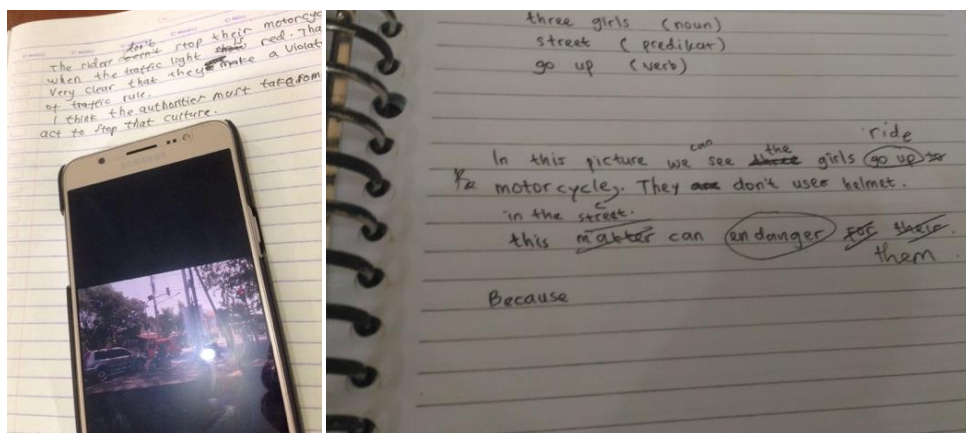 don't
The rider stop their motorcyc
when the traffic light is red. Tha
very clear that they make a violat
of traffic rule.
I think the authorities must take som
act to stop that culture.
SAMSUNG
three girls (noun)
street (predikat)
go up (verb)
ride
can the
In this picture we see three girls go up to
motorcycle. They are don't use helmet.
in the street.
this matter can endanger for their.
them.
Because